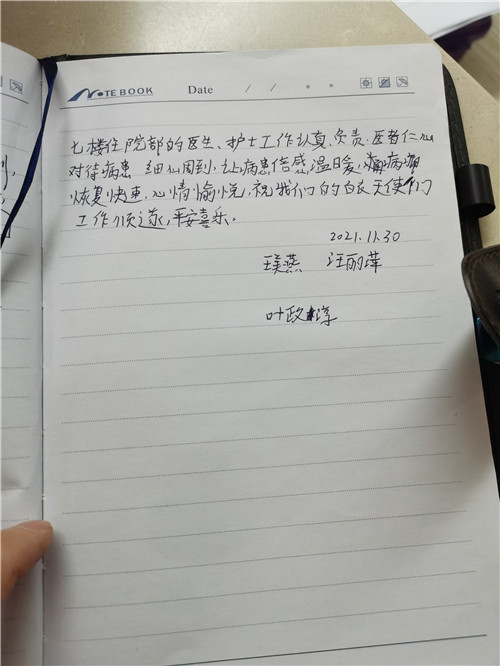 NOTE BOOK Date / /
七楼住院部的医生、护士工作认真、负责、医者仁心
对待病患 细心周到,让病患倍感温暖,病
恢复快速,心情愉悦,祝我们的白衣天使们
工作顺遂,平安喜乐。
2021.11.30
燕 汪丽萍
叶政 淳